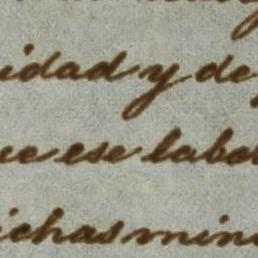 idad y de
ue ese labor
ichas min